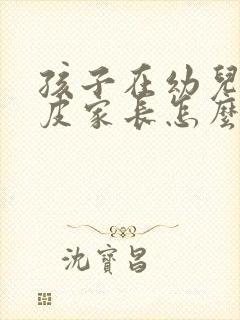 孩子在幼兒
皮家長怎麼
沈寶昌